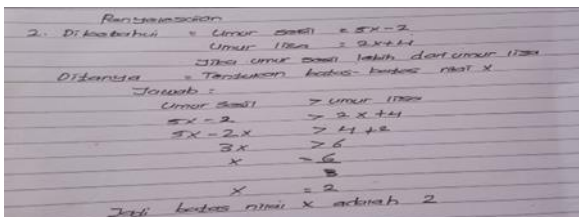 Penyelesaian
2. Diketahui = Umur sesil = 5x-2
Umur liza = 2x+4
Jika umur sesil lebih dari umur liza
Ditanya = Tentukan batas-batas nilai x
Jawab :
Umur sesil > umur liza
5x-2 > 2x+4
5x-2x > 4+2
3x > 6
x = 6
3
x = 2
Jadi batas nilai x adalah 2